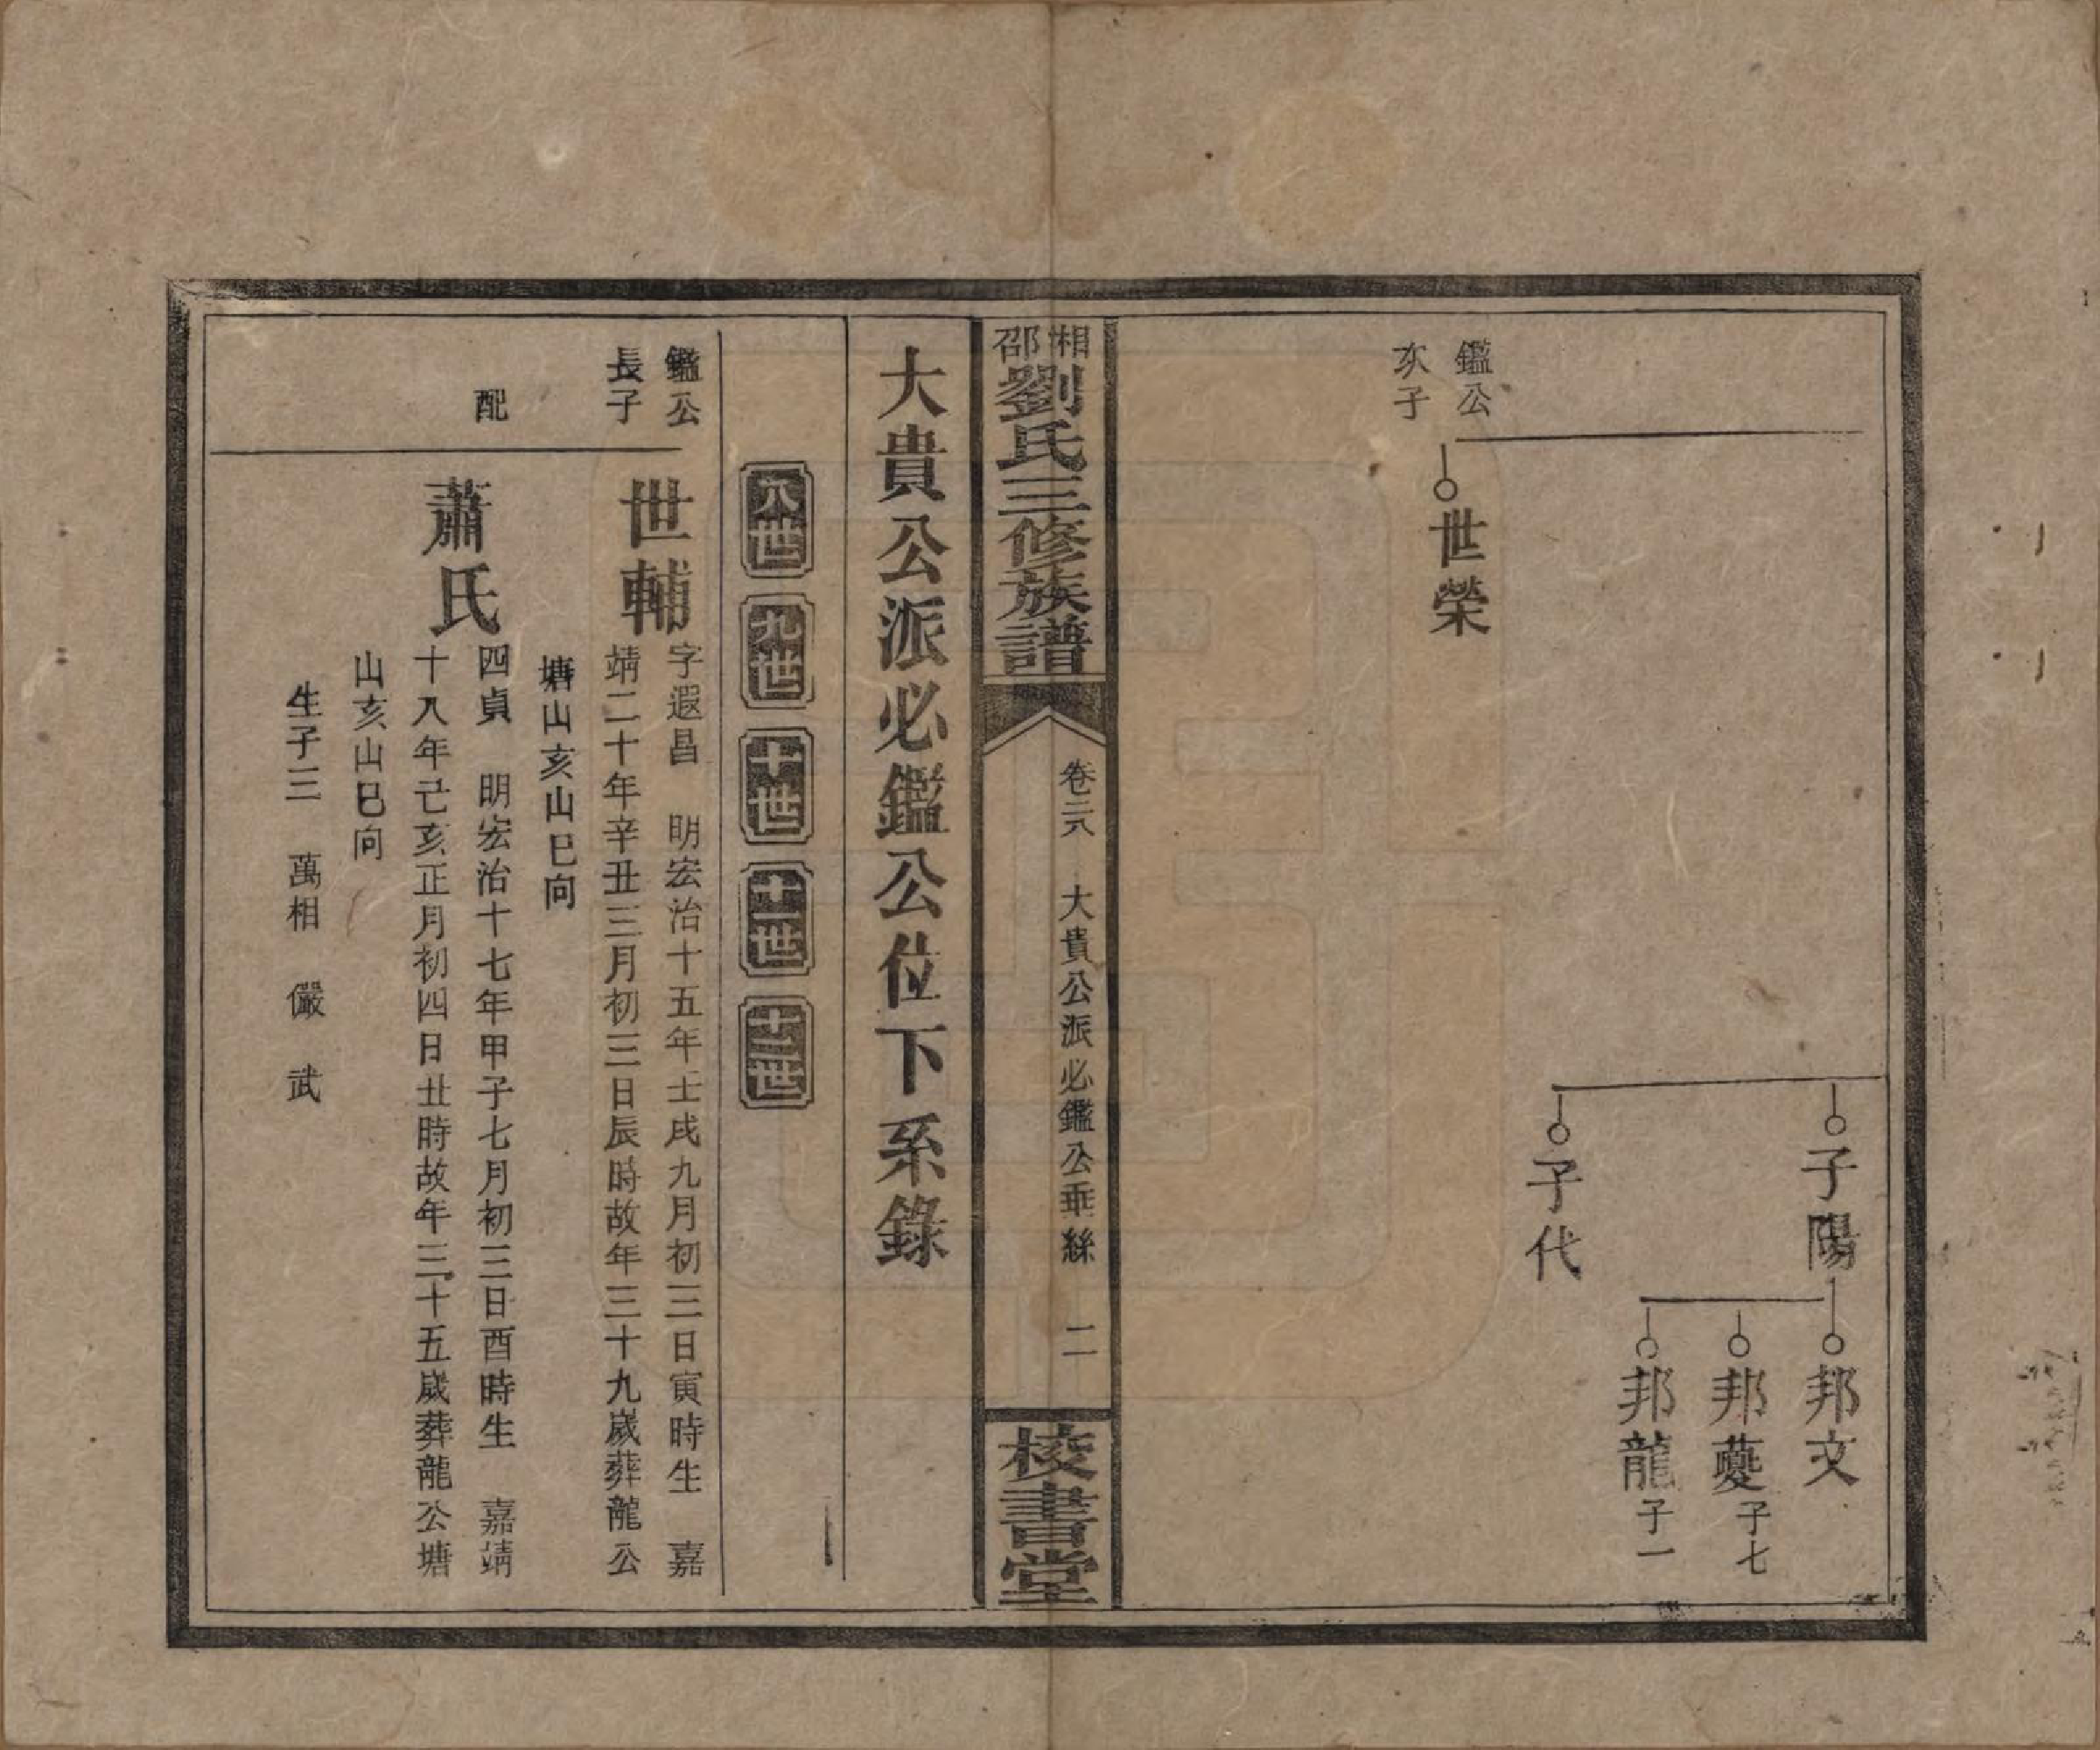 鑑公
次子
世榮
子陽
子代
邦文
邦夔 子七
邦龍 子一
湘邵劉氏三修族譜
卷二八 大貴公派必鑑公垂絲 二
校書堂
大貴公派必鑑公位下系錄
八世 九世 十世 十一世 十二世
鑑公
長子
世輔
字遐昌 明宏治十五年壬戌九月初三日寅時生 嘉
靖二十年辛丑三月初三日辰時故年三十九歲葬龍公
塘山亥山巳向
配
蕭氏
四貞 明宏治十七年甲子七月初三日酉時生 嘉靖
十八年己亥正月初四日丑時故年三十五歲葬龍公塘
山亥山巳向
生子三 萬相 儼 武